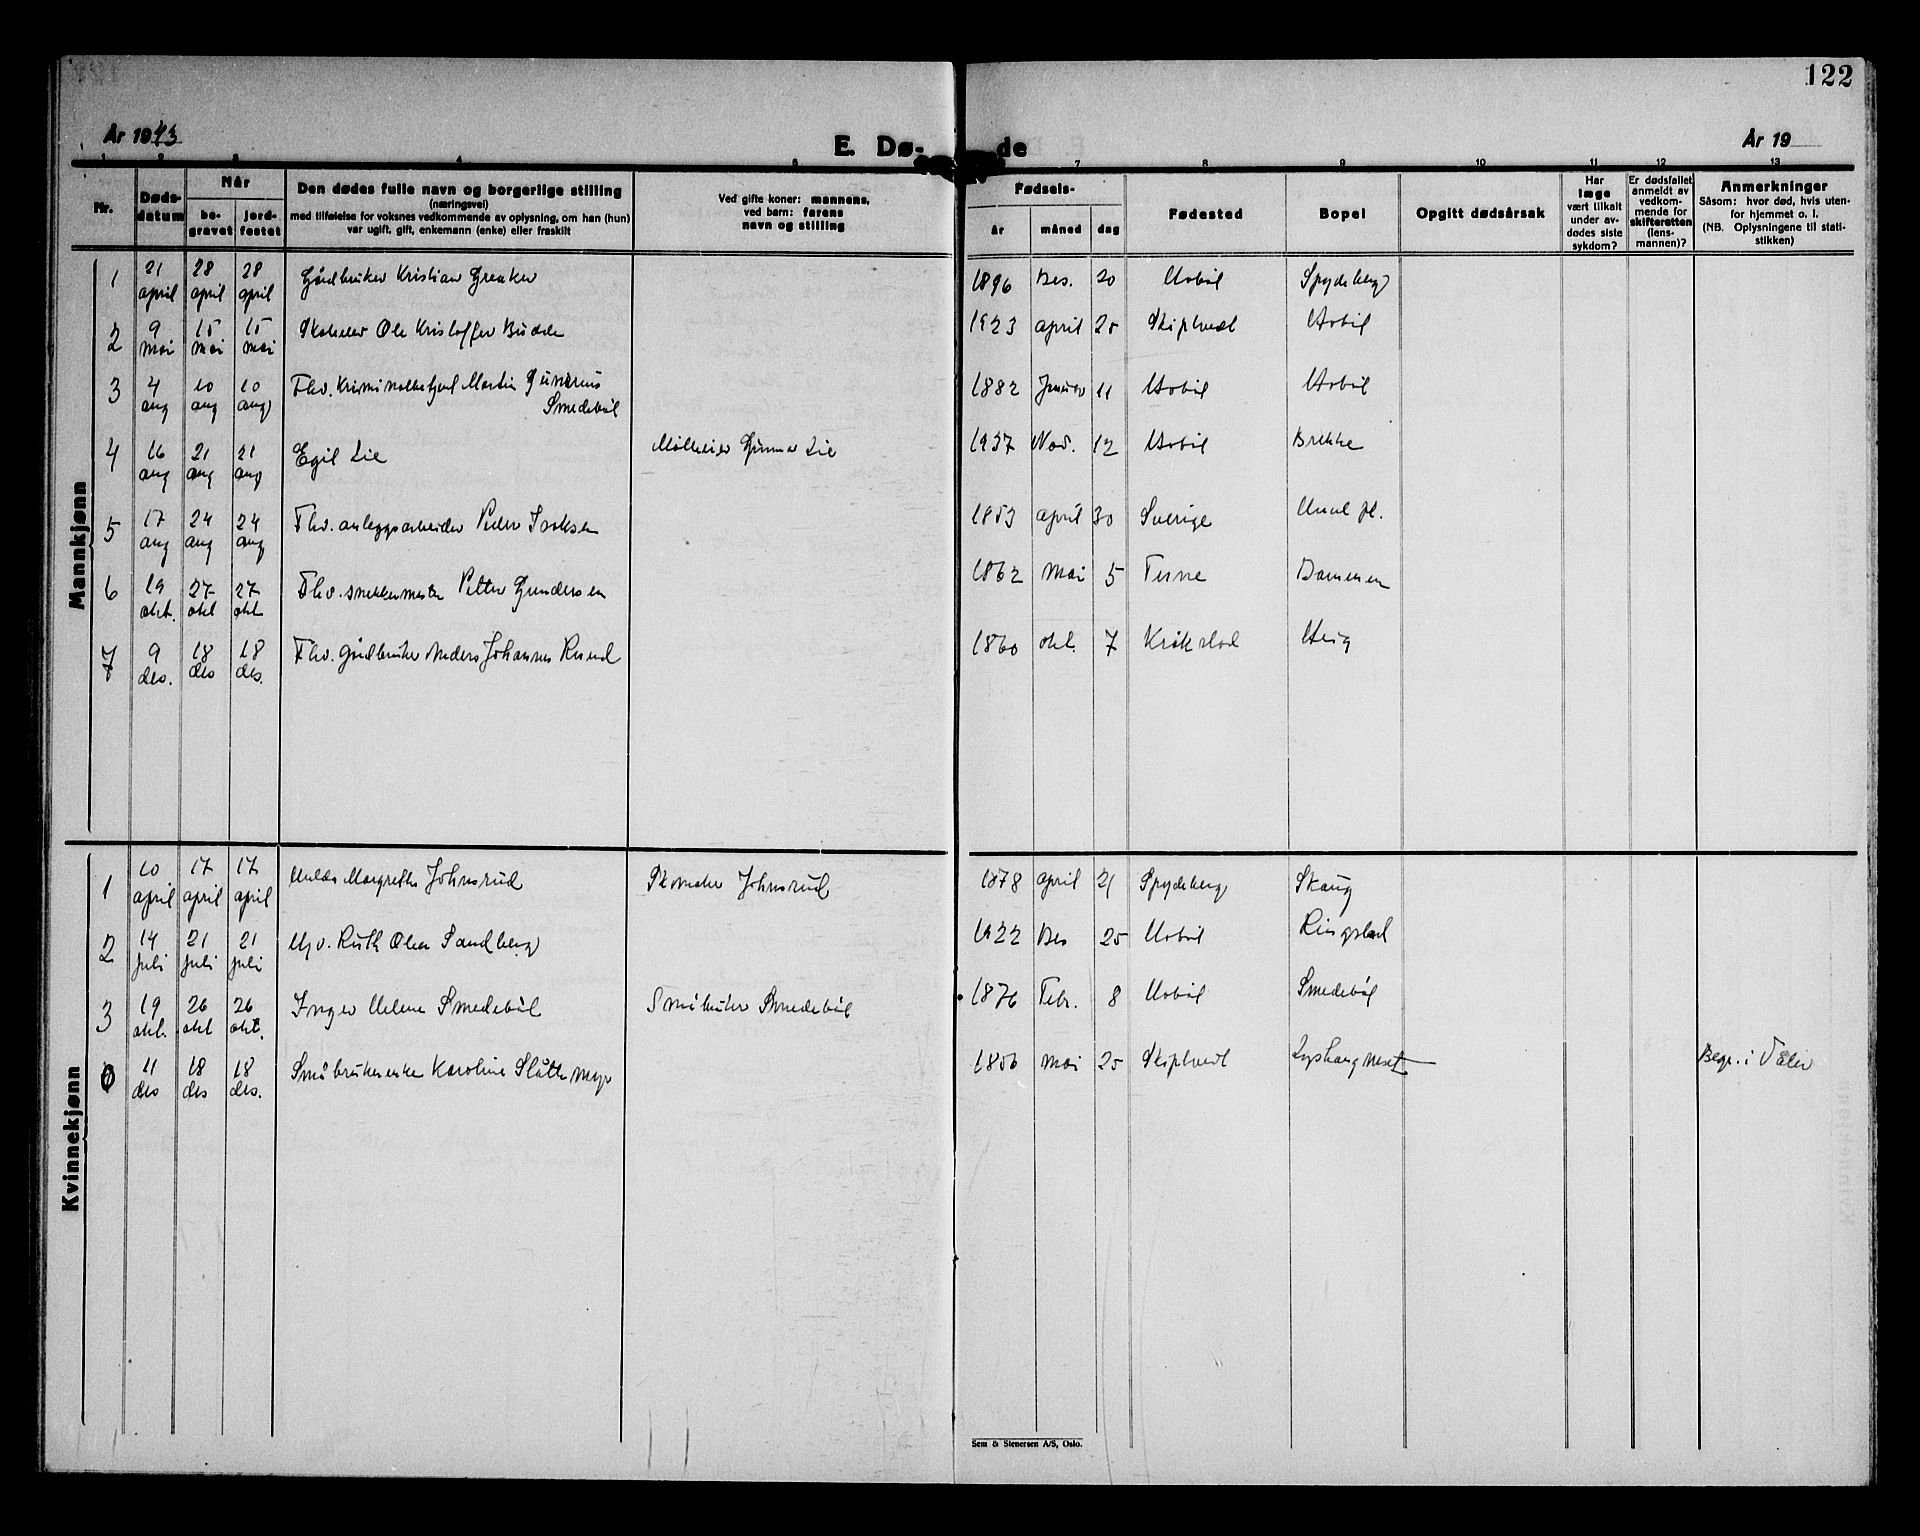 122
År 1943
E. Dø-
de
År 19
1 2 3 4 5 7 8 9 10 11 12 13
Nr.
Døds-
datum
Når
be-
gravet
jord-
festet
Den dødes fulle navn og borgerlige stilling
(næringsvei)
med tilføielse for voksnes vedkommende av oplysning, om han (hun)
var ugift, gift, enkemann (enke) eller fraskilt
Ved gifte koner: mannens,
ved barn: farens
navn og stilling
Fødsels-
år
måned
dag
Fødested
Bopel
Opgitt dødsårsak
Har
læge
vært tilkalt
under av-
dødes siste
sykdom?
Er dødsfallet
anmeldt av
vedkom-
mende for
skifteretten
(lens-
mannen)?
Anmerkninger
Såsom: hvor død, hvis uten-
for hjemmet o. l.
(NB. Oplysningene til stati-
stikken)
Mannkjønn
1 21 april 28 april 28 april Gårdbruker Kristian Greaker 1896 Des. 20 Hobøl Spydeberg
2 9 mai 15 mai 15 mai Skoleelev Ole Kristoffer Budde 1923 april 25 Skiptvedt Hobøl
3 4 aug 10 aug 10 aug Fhv. Kriminalbetjent Martin Gunerius
Smedebøl 1882 Januar 11 Hobøl Hobøl
4 16 aug 21 aug 21 aug Egil Lie Møller Gunnar Lie 1937 Nov. 12 Hobøl Brekke
5 17 aug 24 aug 24 aug Fhv. anleggsarbeider Peder Isaksen 1853 april 30 Sverige pl.
6 19 okt. 27 okt 27 okt Fhv. snekkermester Petter Gundersen 1862 mai 5 Dammen
7 9 des. 18 des 18 des. Fhv. gårdbruker Anders Johannes Ruud 1860 okt. 7 Kråkstad Haig
Kvinnekjønn
1 10 april 17 april 17 april Hulda Margrethe Johnsrud Skomaker Johnsrud 1878 april 21 Spydeberg Skaug
2 14 juli 21 juli 21 juli Ruth Olea Sandberg 1922 Des 25 Hobøl Ringstad
3 19 okt. 26 okt 26 okt. Inger Helene Smedebøl Småbruker Smedebøl 1876 Febr. 8 Hobøl Smedebøl
0 11 des 18 des 18 des. Småbrukerenke Karoline Slåttemyr 1856 mai 25 Skiptvedt Begr. i Våler
Sem & Stenersen A/S, Oslo.